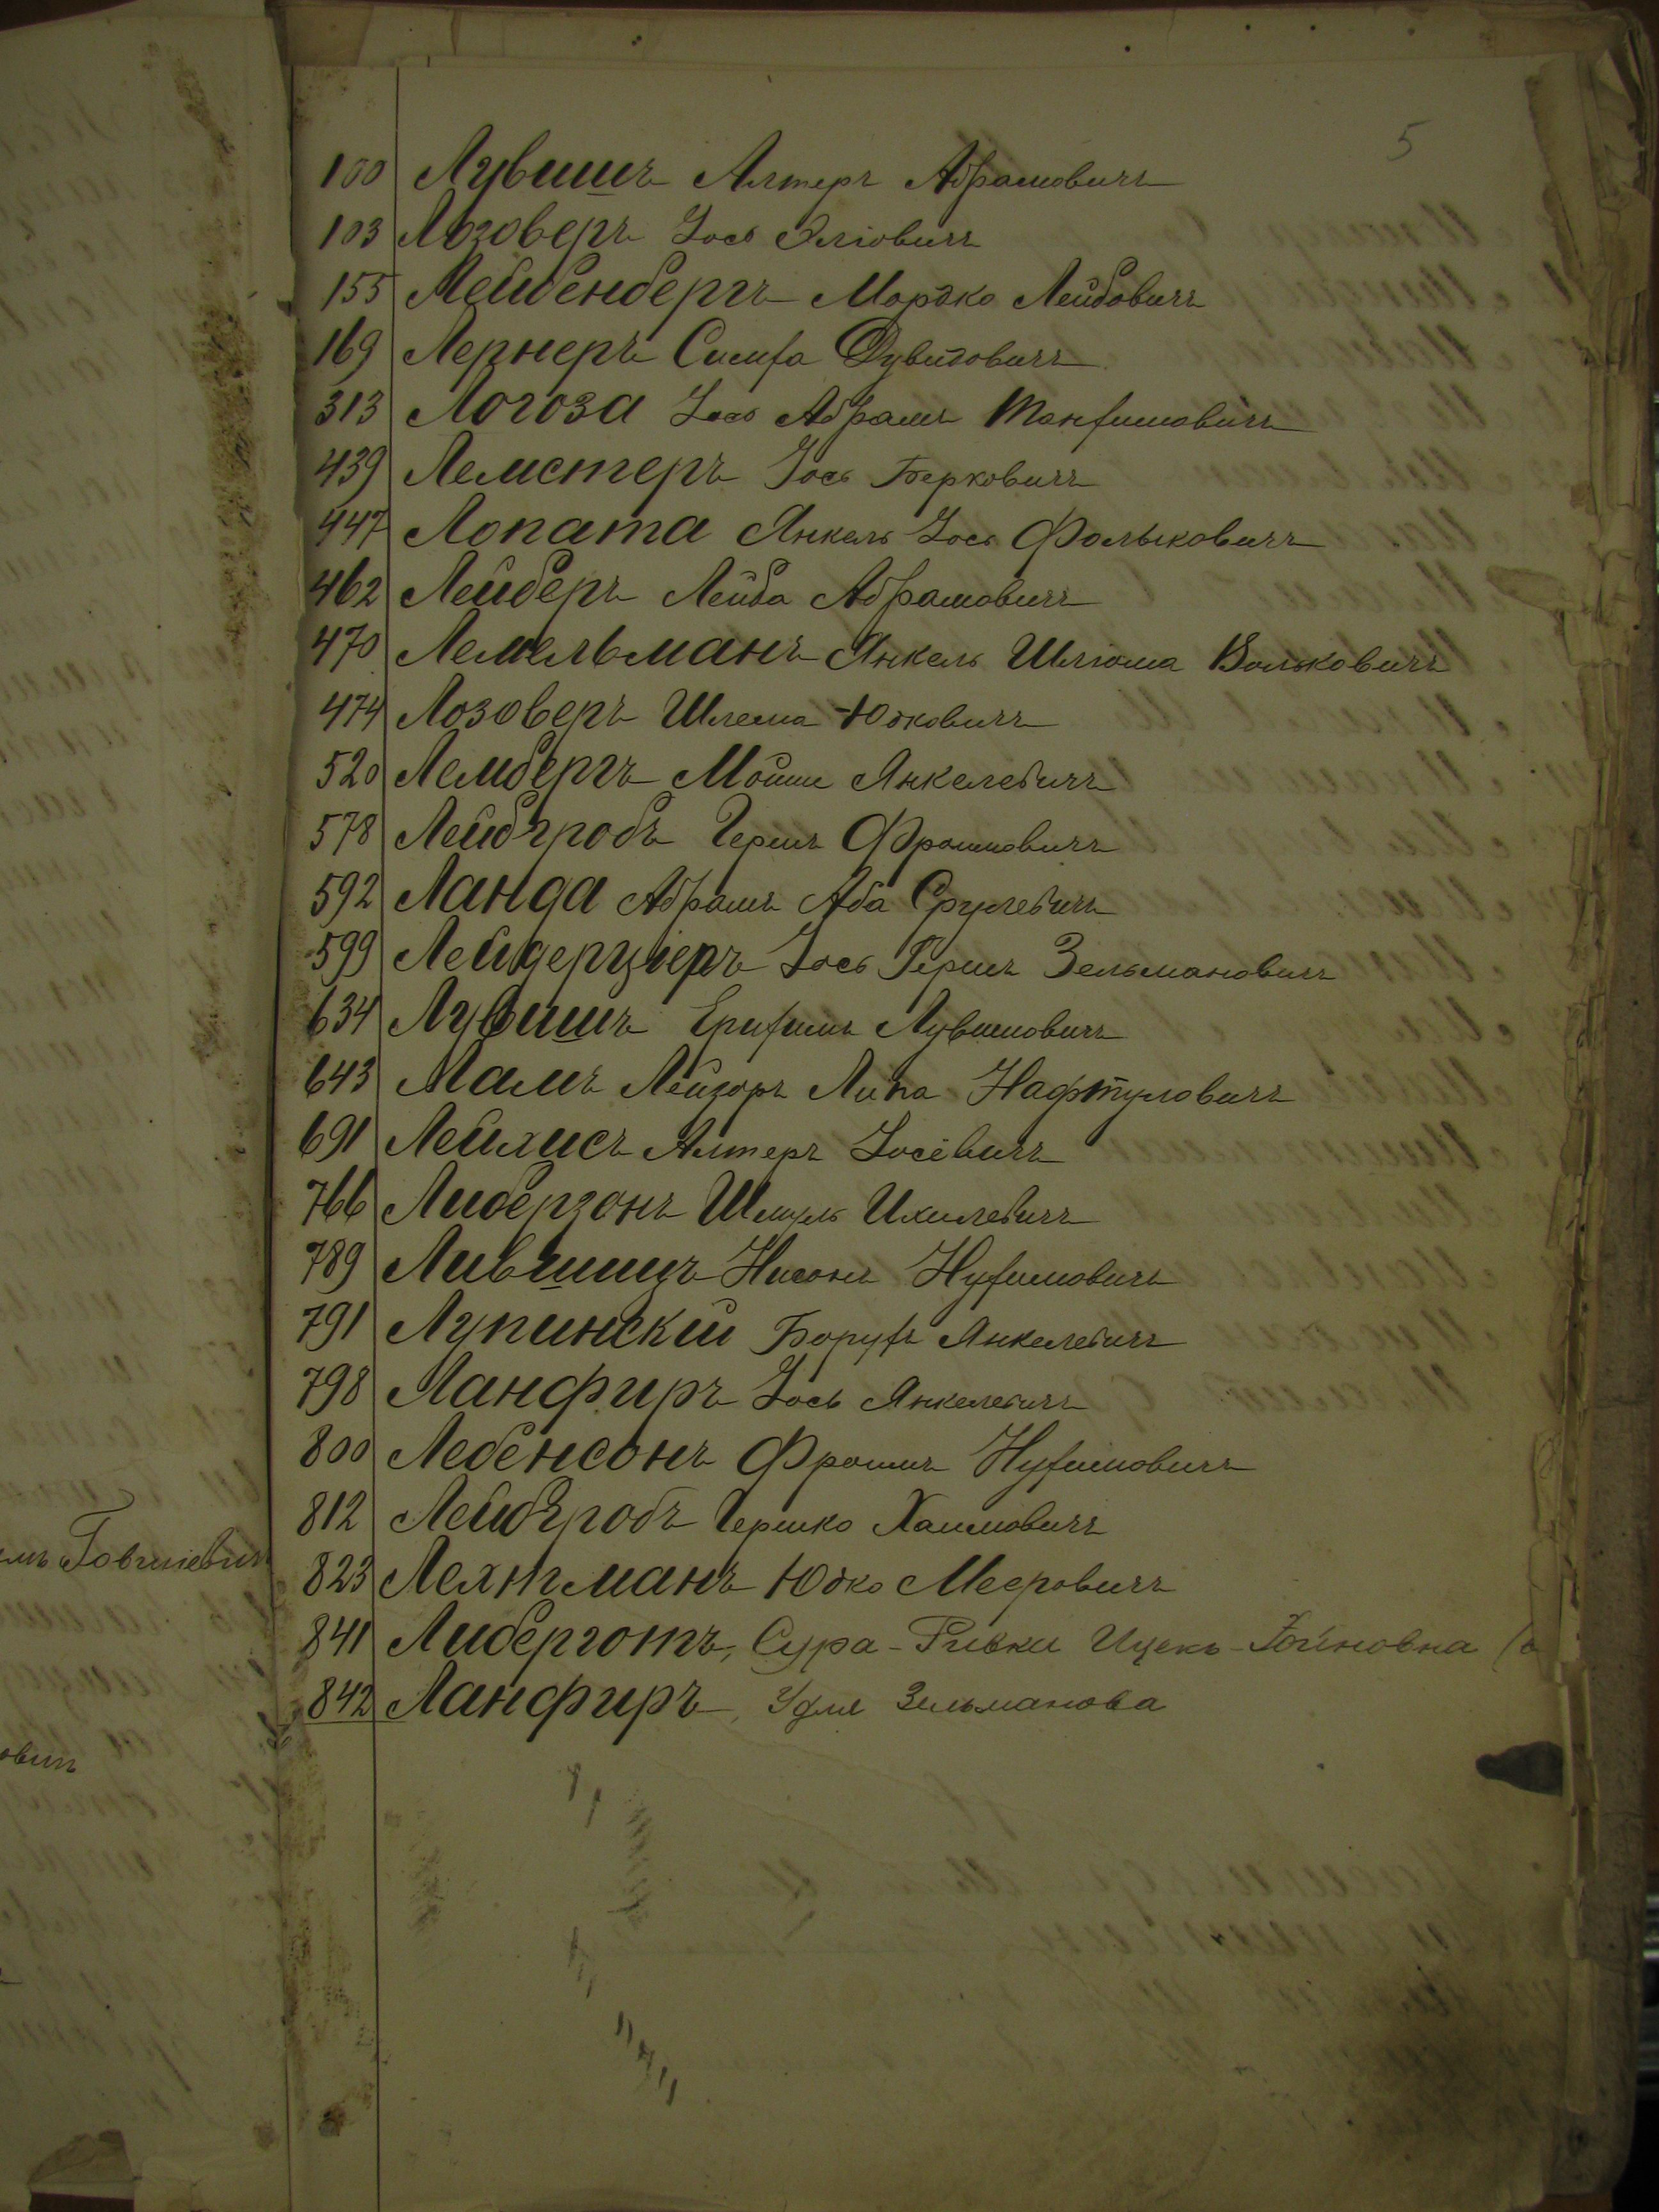 5
100 Лувишъ Алтеръ Абрамовичъ
103 Лозоверъ Iось Элiовичъ
155 Лейбенбергъ Мордко Лейбовичъ
169 Лернеръ Симха Дувидовичъ
313 Логоза Iось Абрамъ Танхимовичъ
439 Лемстеръ Iось Берковичъ
447 Лопата Янкель Iось Фольковичъ
462 Лейберъ Лейба Абрамовичъ
470 Лемельманъ Янкель Шлiома Вольковичъ
474 Лозоверъ Шлема Юдковичъ
520 Лембергъ Мошии Янкелевичъ
578 Лейбгробъ Гершъ Фроимовичъ
592 Ланда Абрамъ Аба Срулевичъ
599 Лейдерцiеръ Iось Гершъ Зельмановичъ
634 Лувишъ Ерихимъ Лувишовичъ
643 Ламъ Лейзоръ Липа Нафтуловичъ
691 Лейхисъ Алтеръ Iосевичъ
766 Либерзонъ Шмуль Ихилевичъ
789 Лившицъ Нисонъ Нухимовичъ
791 Лупинскiй Борухъ Янкелевичъ
798 Ланфиръ Iось Янкелевичъ
800 Лебенсонъ Фроимъ Нухимовичъ
812 Лейбгробъ Гершко Хаимовичъ
823 Лехтманъ Юдко Мееровичъ
841 Либерготъ, Сура-Ривки Ицекъ-Гойновна
842 Ланфиръ, Удля Зельманова